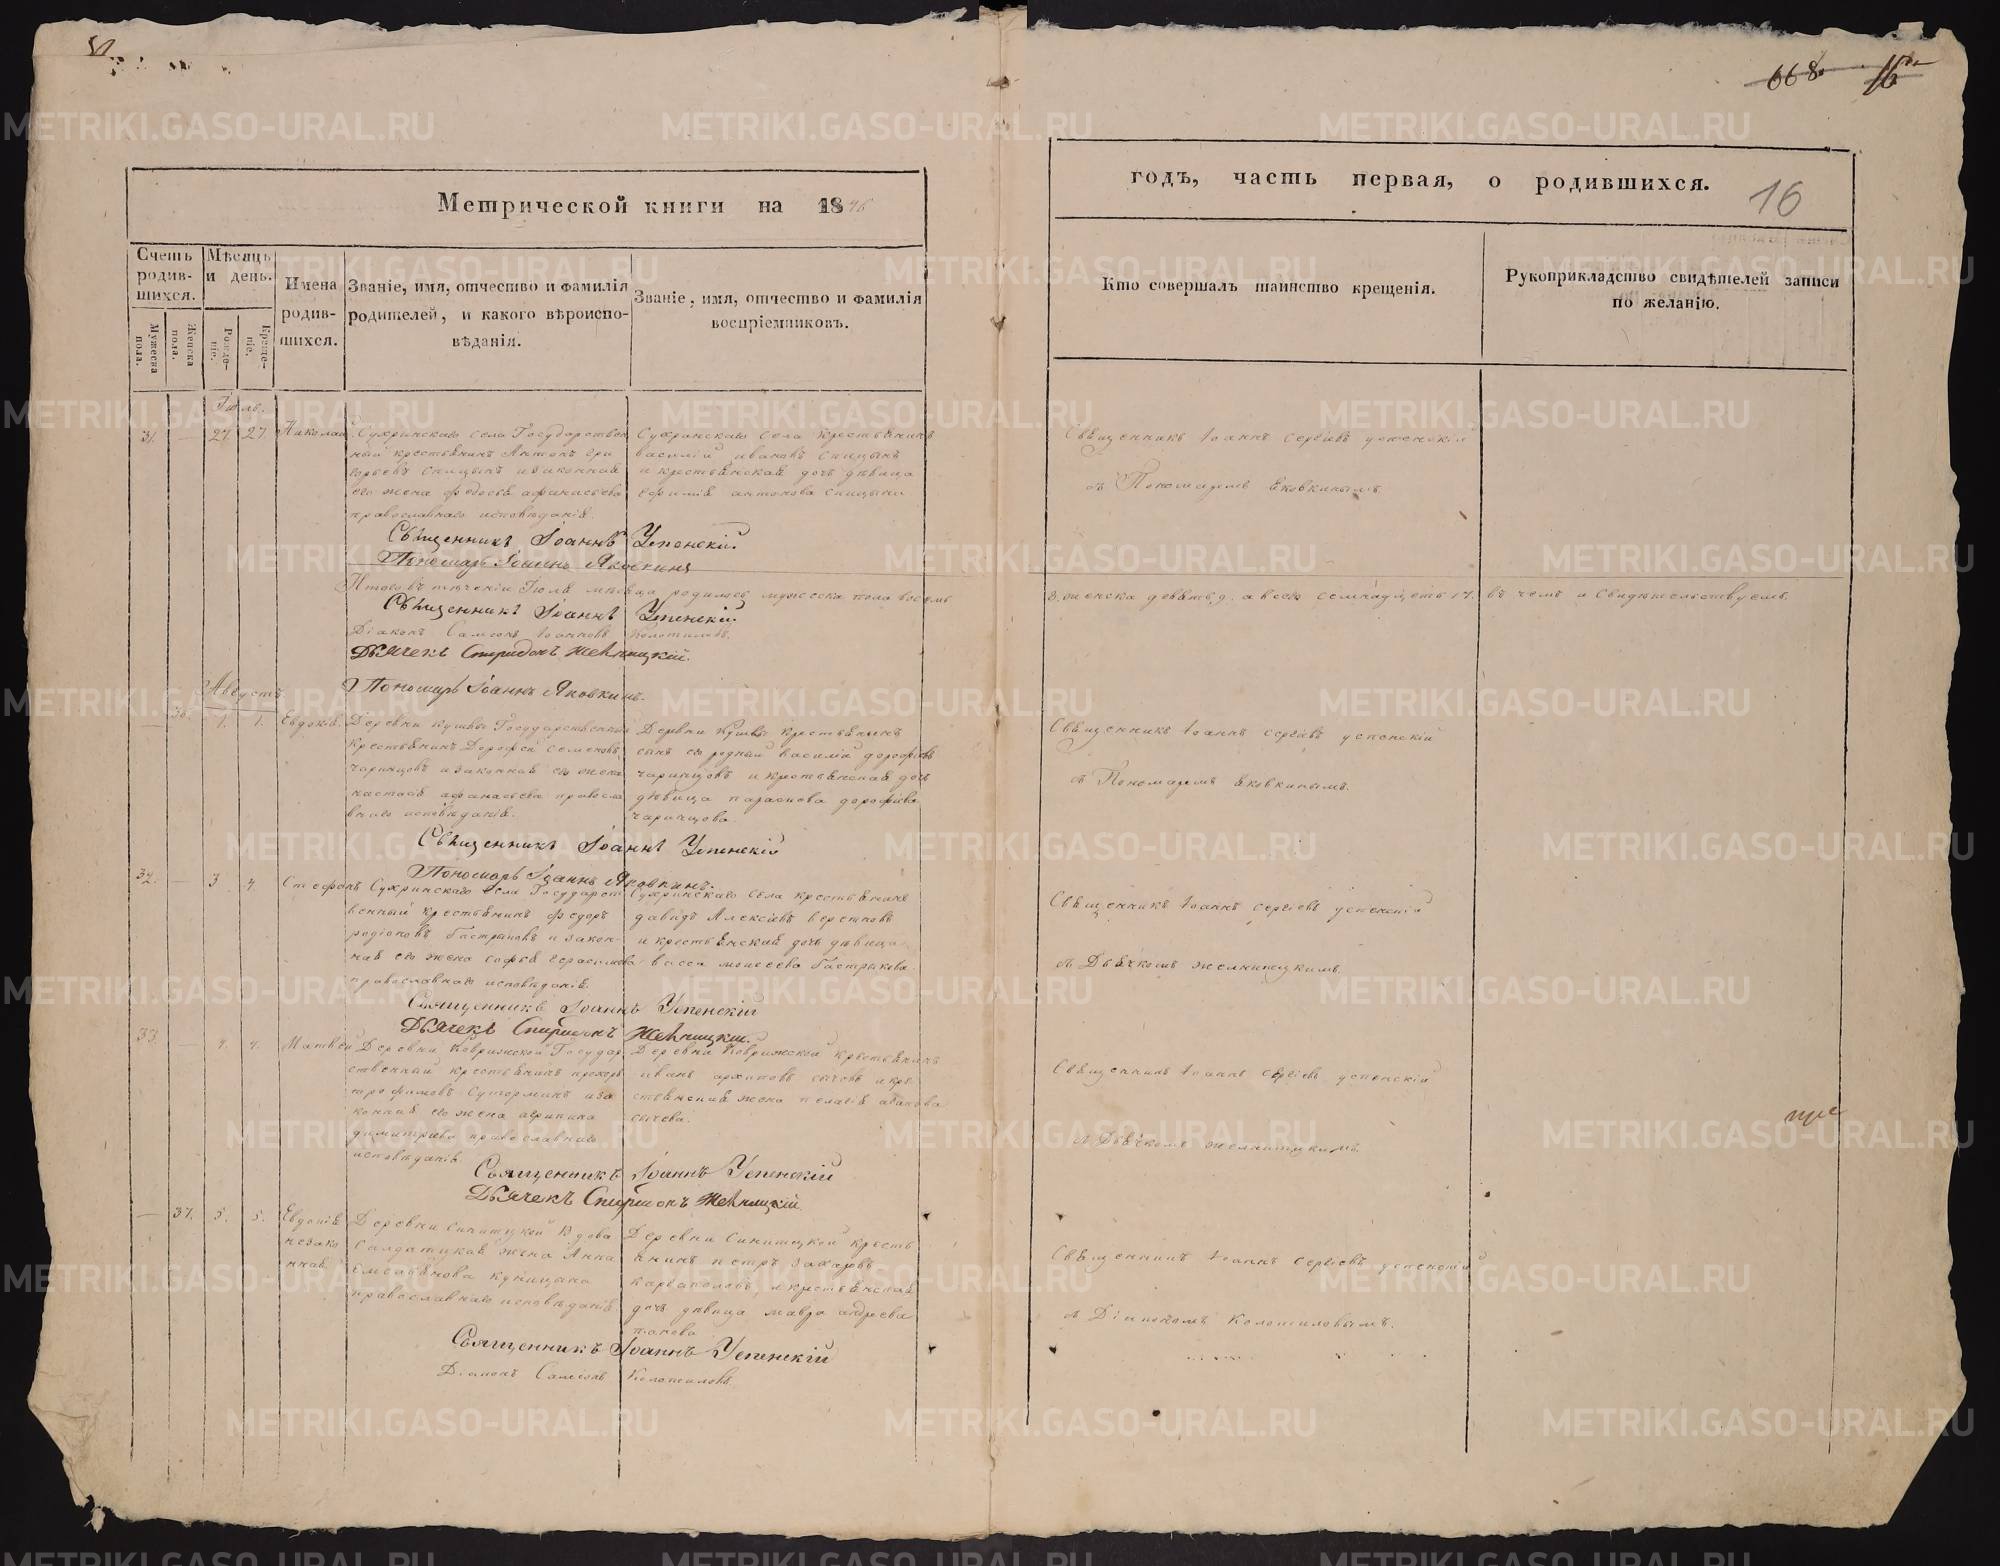 668
16
Метрической книги на 1846
годъ, часть первая, о родившихся.
16
Счетъ родив-шихся.
Мужеска пола.
Женска пола.
Мѣсяцъ и день.
Рожде-ніе.
Креще-ніе.
Имена родив-шихся.
Званіе, имя, отчество и фамилія
родителей, и какого вѣроиспо-
вѣданія.
Званіе, имя, отчество и фамилія
воспріемниковъ.
Кто совершалъ таинство крещенія.
Рукоприкладство свидѣтелей записи
по желанію.
Іюль.
31. — 27 27 Николай
Сухринскаго села Государствен
ный крестьянинъ Антонъ Гри
горьевъ Спицынъ и законная
его жена Федосья Афанасьева
православнаго исповѣданія.
Сухринскаго села крестьянинъ
василій ивановъ Спицынъ
и крестьянская дочь дѣвица
Ефимія антонова спицына
Священникъ Іоаннъ Сергіевъ успенскій
съ Пономаремъ Яковкинымъ.
Священникъ Іоаннъ Успенскій
Пономарь Іоаннъ Яковкинъ
Итого въ теченіи Іюля мѣсяца родилось мужеска пола восемь
8. женска девять 9. а всего семнадцать 17. въ чемъ и свидѣтельствуемъ.
Священникъ Іоаннъ Успенскій
Діаконъ Самсонъ Іоанновъ Колотиловъ.
Дьячекъ Спиридонъ Желницкій.
Пономарь Іоаннъ Яковкинъ.
Августъ
— 36. 1. 1. Евдокія.
Деревни кушвы Государственный
крестьянинъ Дорофей семеновъ
чаринцовъ и законная его жена
настасія афанасьева правосла
внаго исповѣданія.
Деревни Кушвы крестьянинъ
сынъ его родный василій дорофѣевъ
чаринцовъ и крестьянская дочь
дѣвица параскова дорофѣева
чаринцова.
Священникъ Іоаннъ сергіевъ успенскій
съ Пономаремъ Яковкинымъ.
Священникъ Іоаннъ Успенскій
Пономарь Іоаннъ Яковкинъ.
32. — 3 4. Стефанъ
Сухринскаго села Государст
венный крестьянинъ федоръ
родіоновъ Гастрыковъ и закон
ная его жена софья герасимова
православнаго исповѣданія.
Сухринскаго села крестьянинъ
давидъ Алексѣевъ
и крестьянская дочь дѣвица
васса моисеева Гастрыкова
Священникъ Іоаннъ сергіевъ успенскій
съ Дьячкомъ желницкимъ.
Священникъ Іоаннъ Успенскій
Дьячекъ Спиридонъ Желницкій.
33. — 4. 4. Матвей
Деревни Коврижской Государ
ственный крестьянинъ прохоръ
трофимовъ Сутормин и за
конная его жена агрипина
димитріева православнаго
исповѣданія
Деревни Коврижской крестьянинъ
иванъ архиповъ сычевъ и кре
стьянская жена пелагія
сычева.
Священникъ Іоаннъ сергіевъ успенскій
съ Дьячкомъ желницкимъ.
Священникъ Іоаннъ Успенскій
Дьячекъ Спиридонъ Желницкій.
— 37. 5. 5. Евдокія незако нная
Деревни синицкой Вдова
Салдатская жена Анна
православнаго исповѣданія
Деревни Синицкой кресть
янинъ петръ захаровъ
карваполовъ и крестьянская
дочь дѣвица мавра андреева
панова
Священникъ Іоаннъ сергіевъ успенскій
съ Діакономъ Колотиловымъ.
Священникъ Іоаннъ Успенскій
Діаконъ Самсонъ Колотиловъ.
METRIKI.GASO-URAL.RU